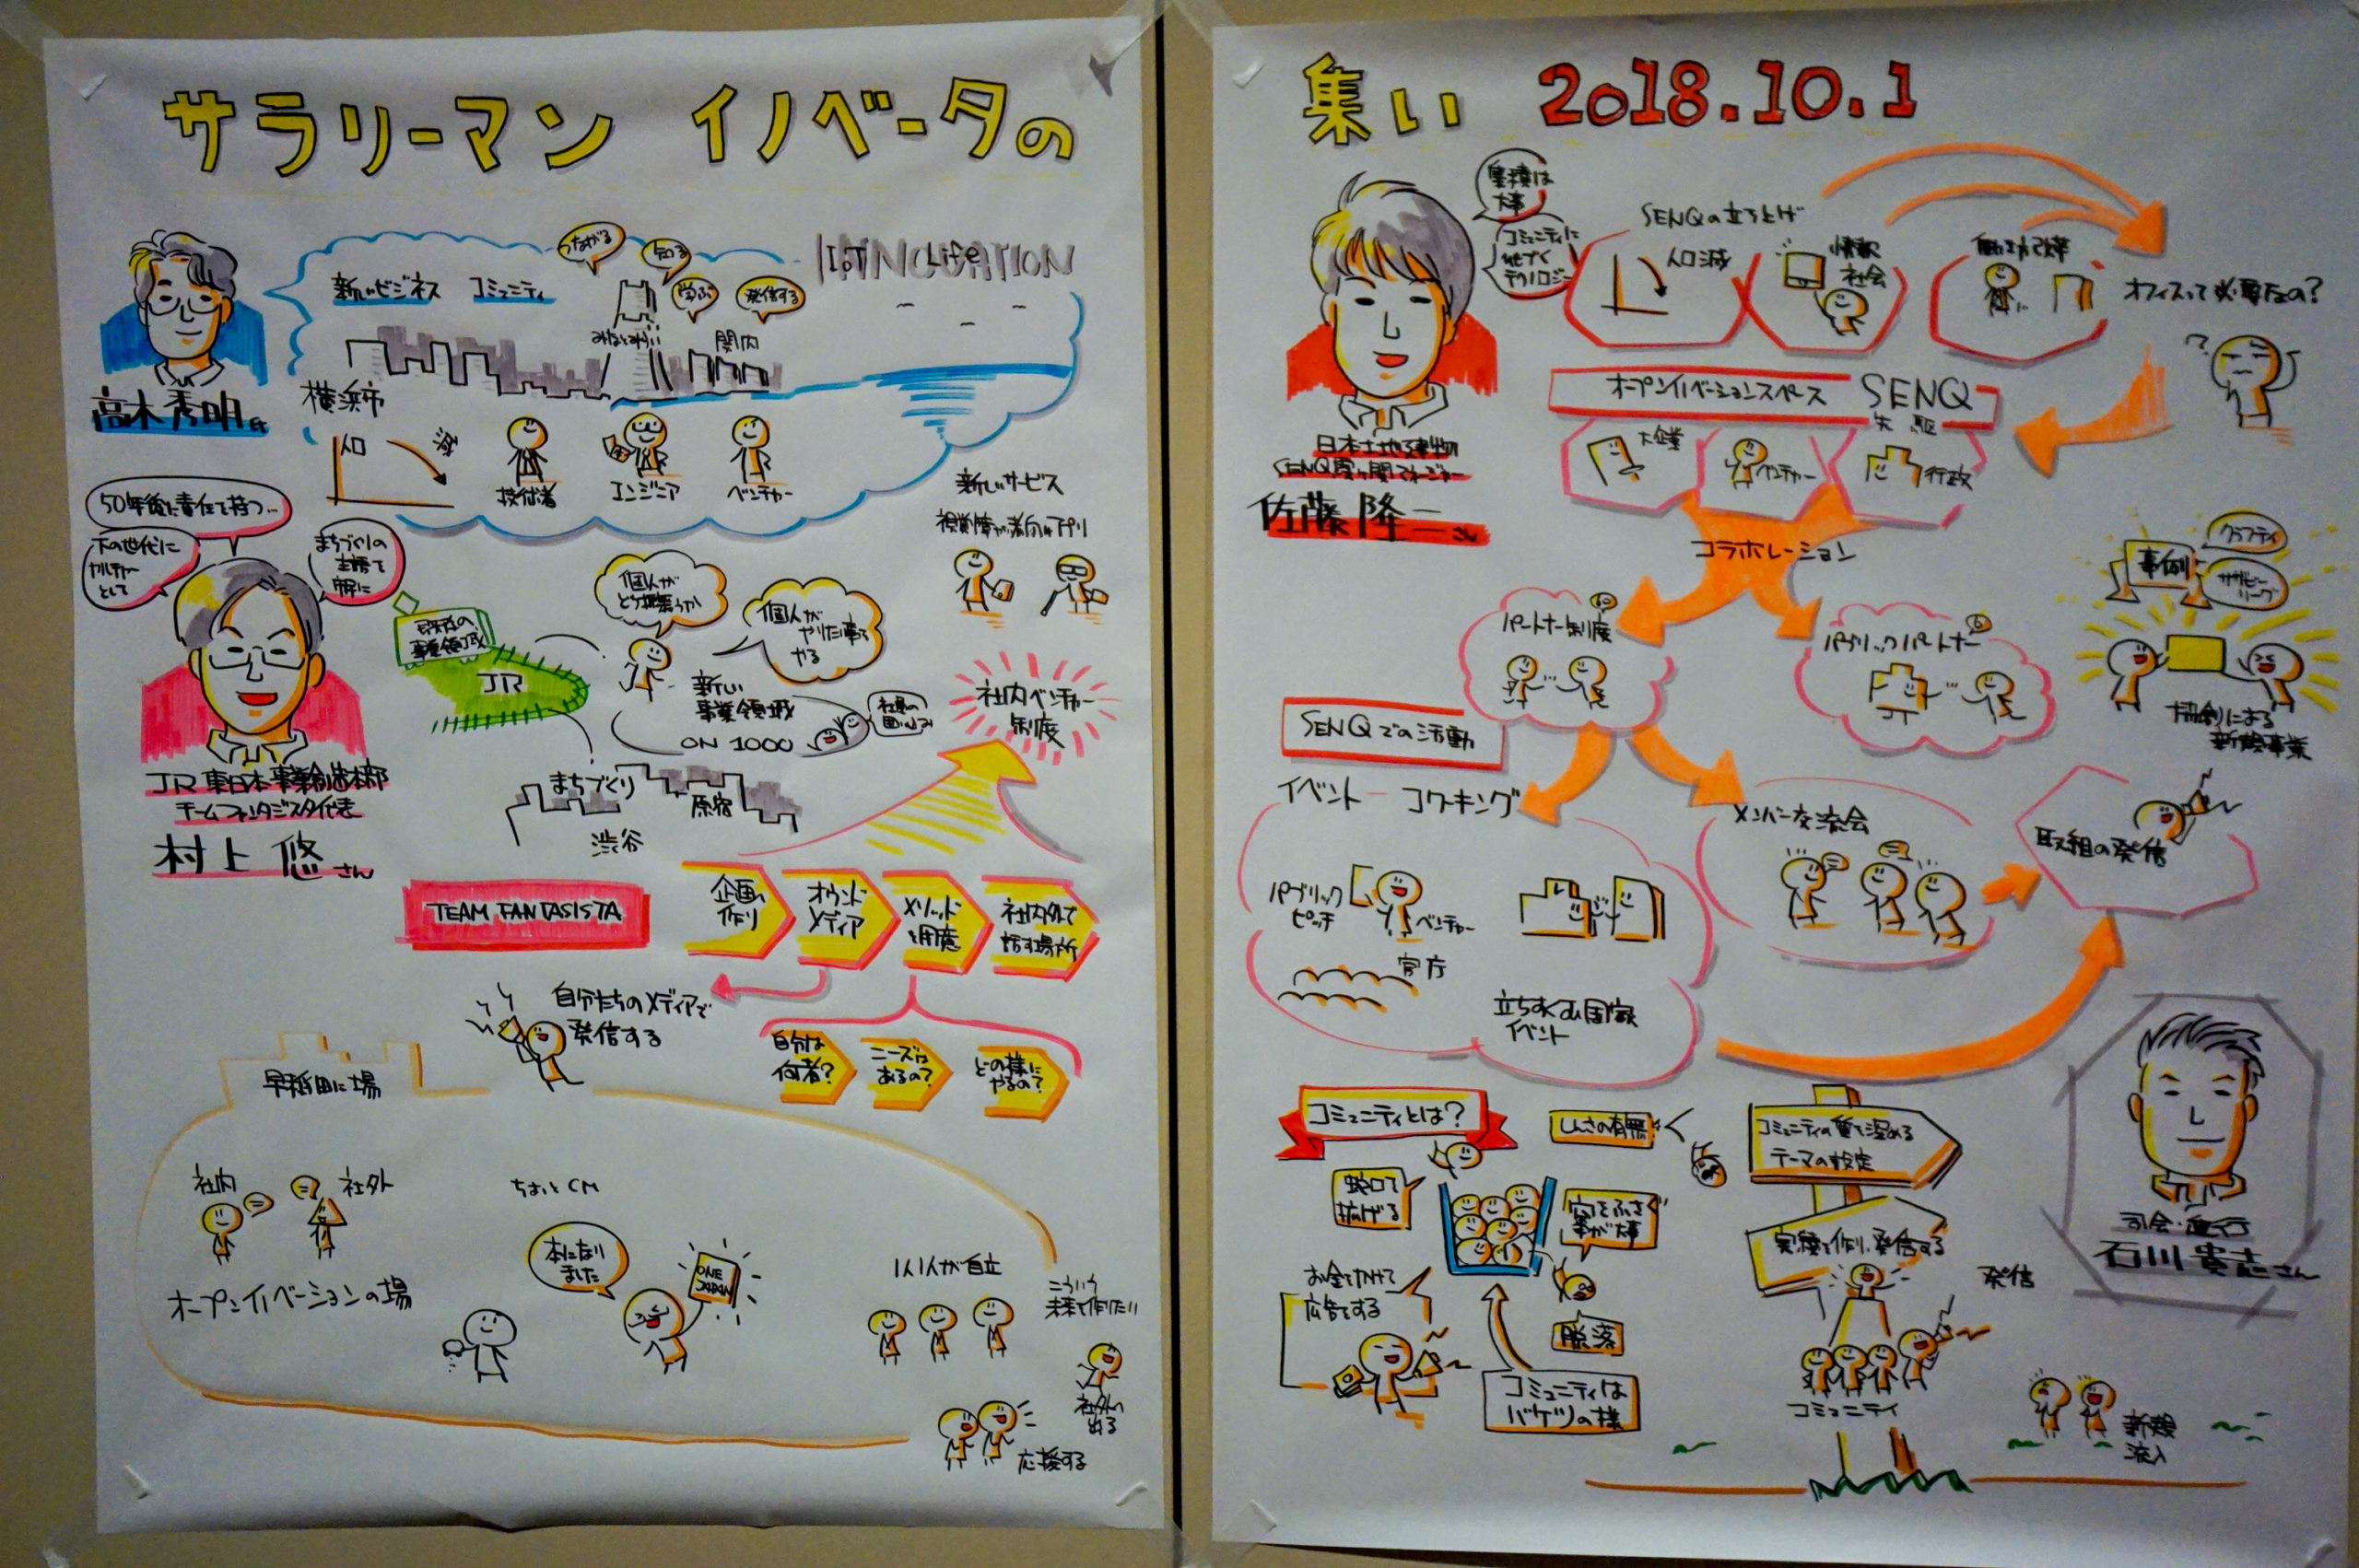 サラリーマン イノベータの
高木秀明氏
新しいビジネス コミュニティ
つながる
知る
学ぶ
発信する
IoT
Life
INNOVATION
みなとみらい
関内
横浜市
人口
減
技術者
エンジニア
ベンチャー
50年後に責任を持つ…
下の世代に
カルチャー
として
まちづくりの
JR東日本事業創造本部
チームファンタジスタ代表
村上 悠さん
事業領域
JR
個人が
どう振舞うか
個人が
やりたい事を
やる
新しい
事業領域
ON 1000
まちづくり
原宿
渋谷
新しいサービス
社内ベンチャー
制度
TEAM FANTASISTA
企画
作り
オウンド
メディア
メソッド
用意
社内外で
話す場所
自分たちのメディアで
発信する
自分は
何者?
ニーズは
あるの?
どの様に
やるの?
早稲田に場
社内
社外
オープンイノベーションの場
ちょいとCM
本になり
ました
ONE
JAPAN
1人1人が自立
こういう
未来を作りたい
社外へ
出る
応援する
集い 2018.10.1
集積は
大事
コミュニティに
テクノロジー
日本土地建物
SENQ霞ヶ関マネージャー
佐藤隆二さん
SENQの立ち上げ
人口減
情報
社会
オフィスって必要なの?
オープンイノベーションスペース SENQ
先駆
大企業
ベンチャー
行政
コラボレーション
パートナー制度
パブリックパートナー
事例
協創による
新規事業
SENQでの活動
イベント コワーキング
パブリック
ピッチ
ベンチャー
官庁
イベント
メンバー交流会
取組の発信
コミュニティとは?
蛇口で
拡げる
穴をふさぐ
事が大事
お金をかけて
広告をする
脱落
コミュニティは
バケツの様
コミュニティの質を深める
テーマの設定
実種を作り、発信する
発信
コミュニティ
新規
流入
司会・進行
石川貴志さん